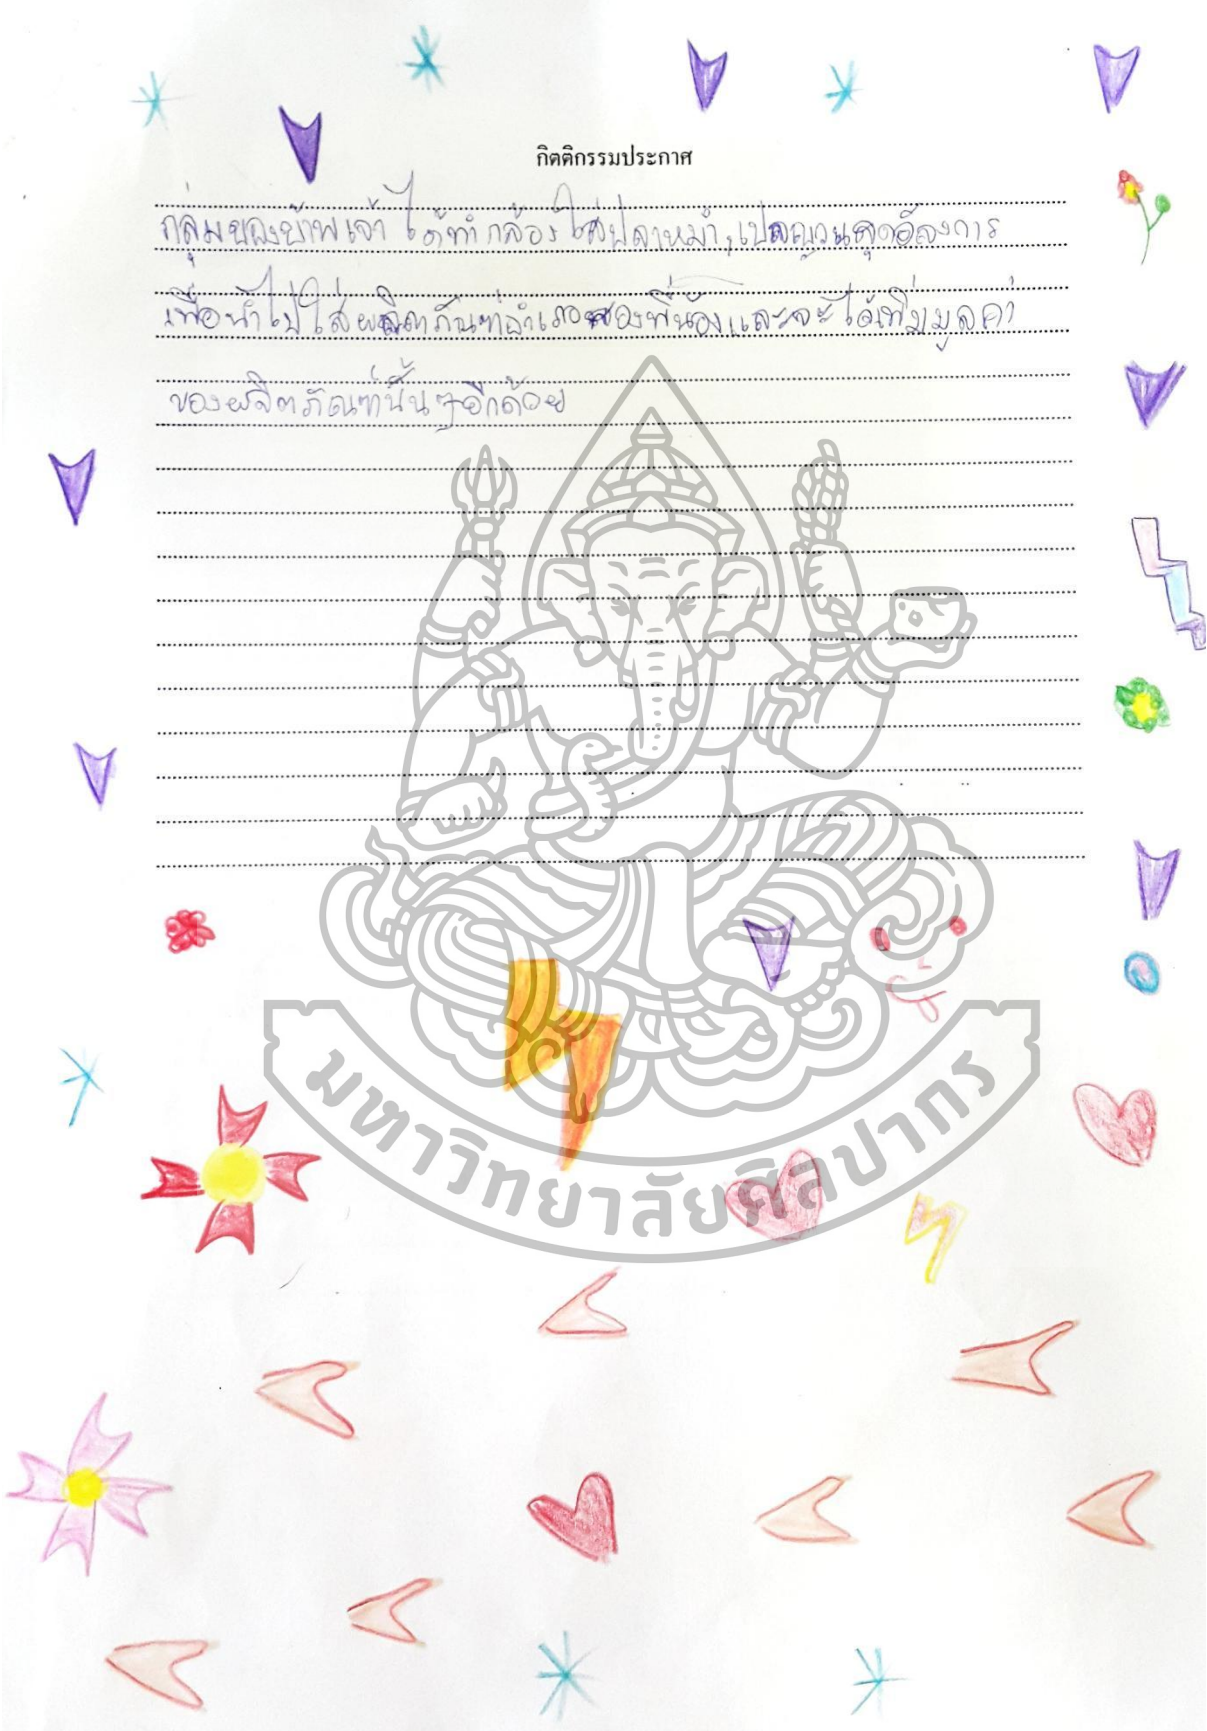 กิตติกรรมประกาศ
กลุ่มของข้าพเจ้า ได้ทำกล่อง ใส่ปลาหมำ,เปลญวนสุดอลังการ
เพื่อนำไป ใส่ผลิตภัณฑ์ของพี่น้องและจะได้เพิ่มมูลค่า
ของผลิตภัณฑ์นั้นๆอีกด้วย
มหาวิทยาลัยศิลปากร